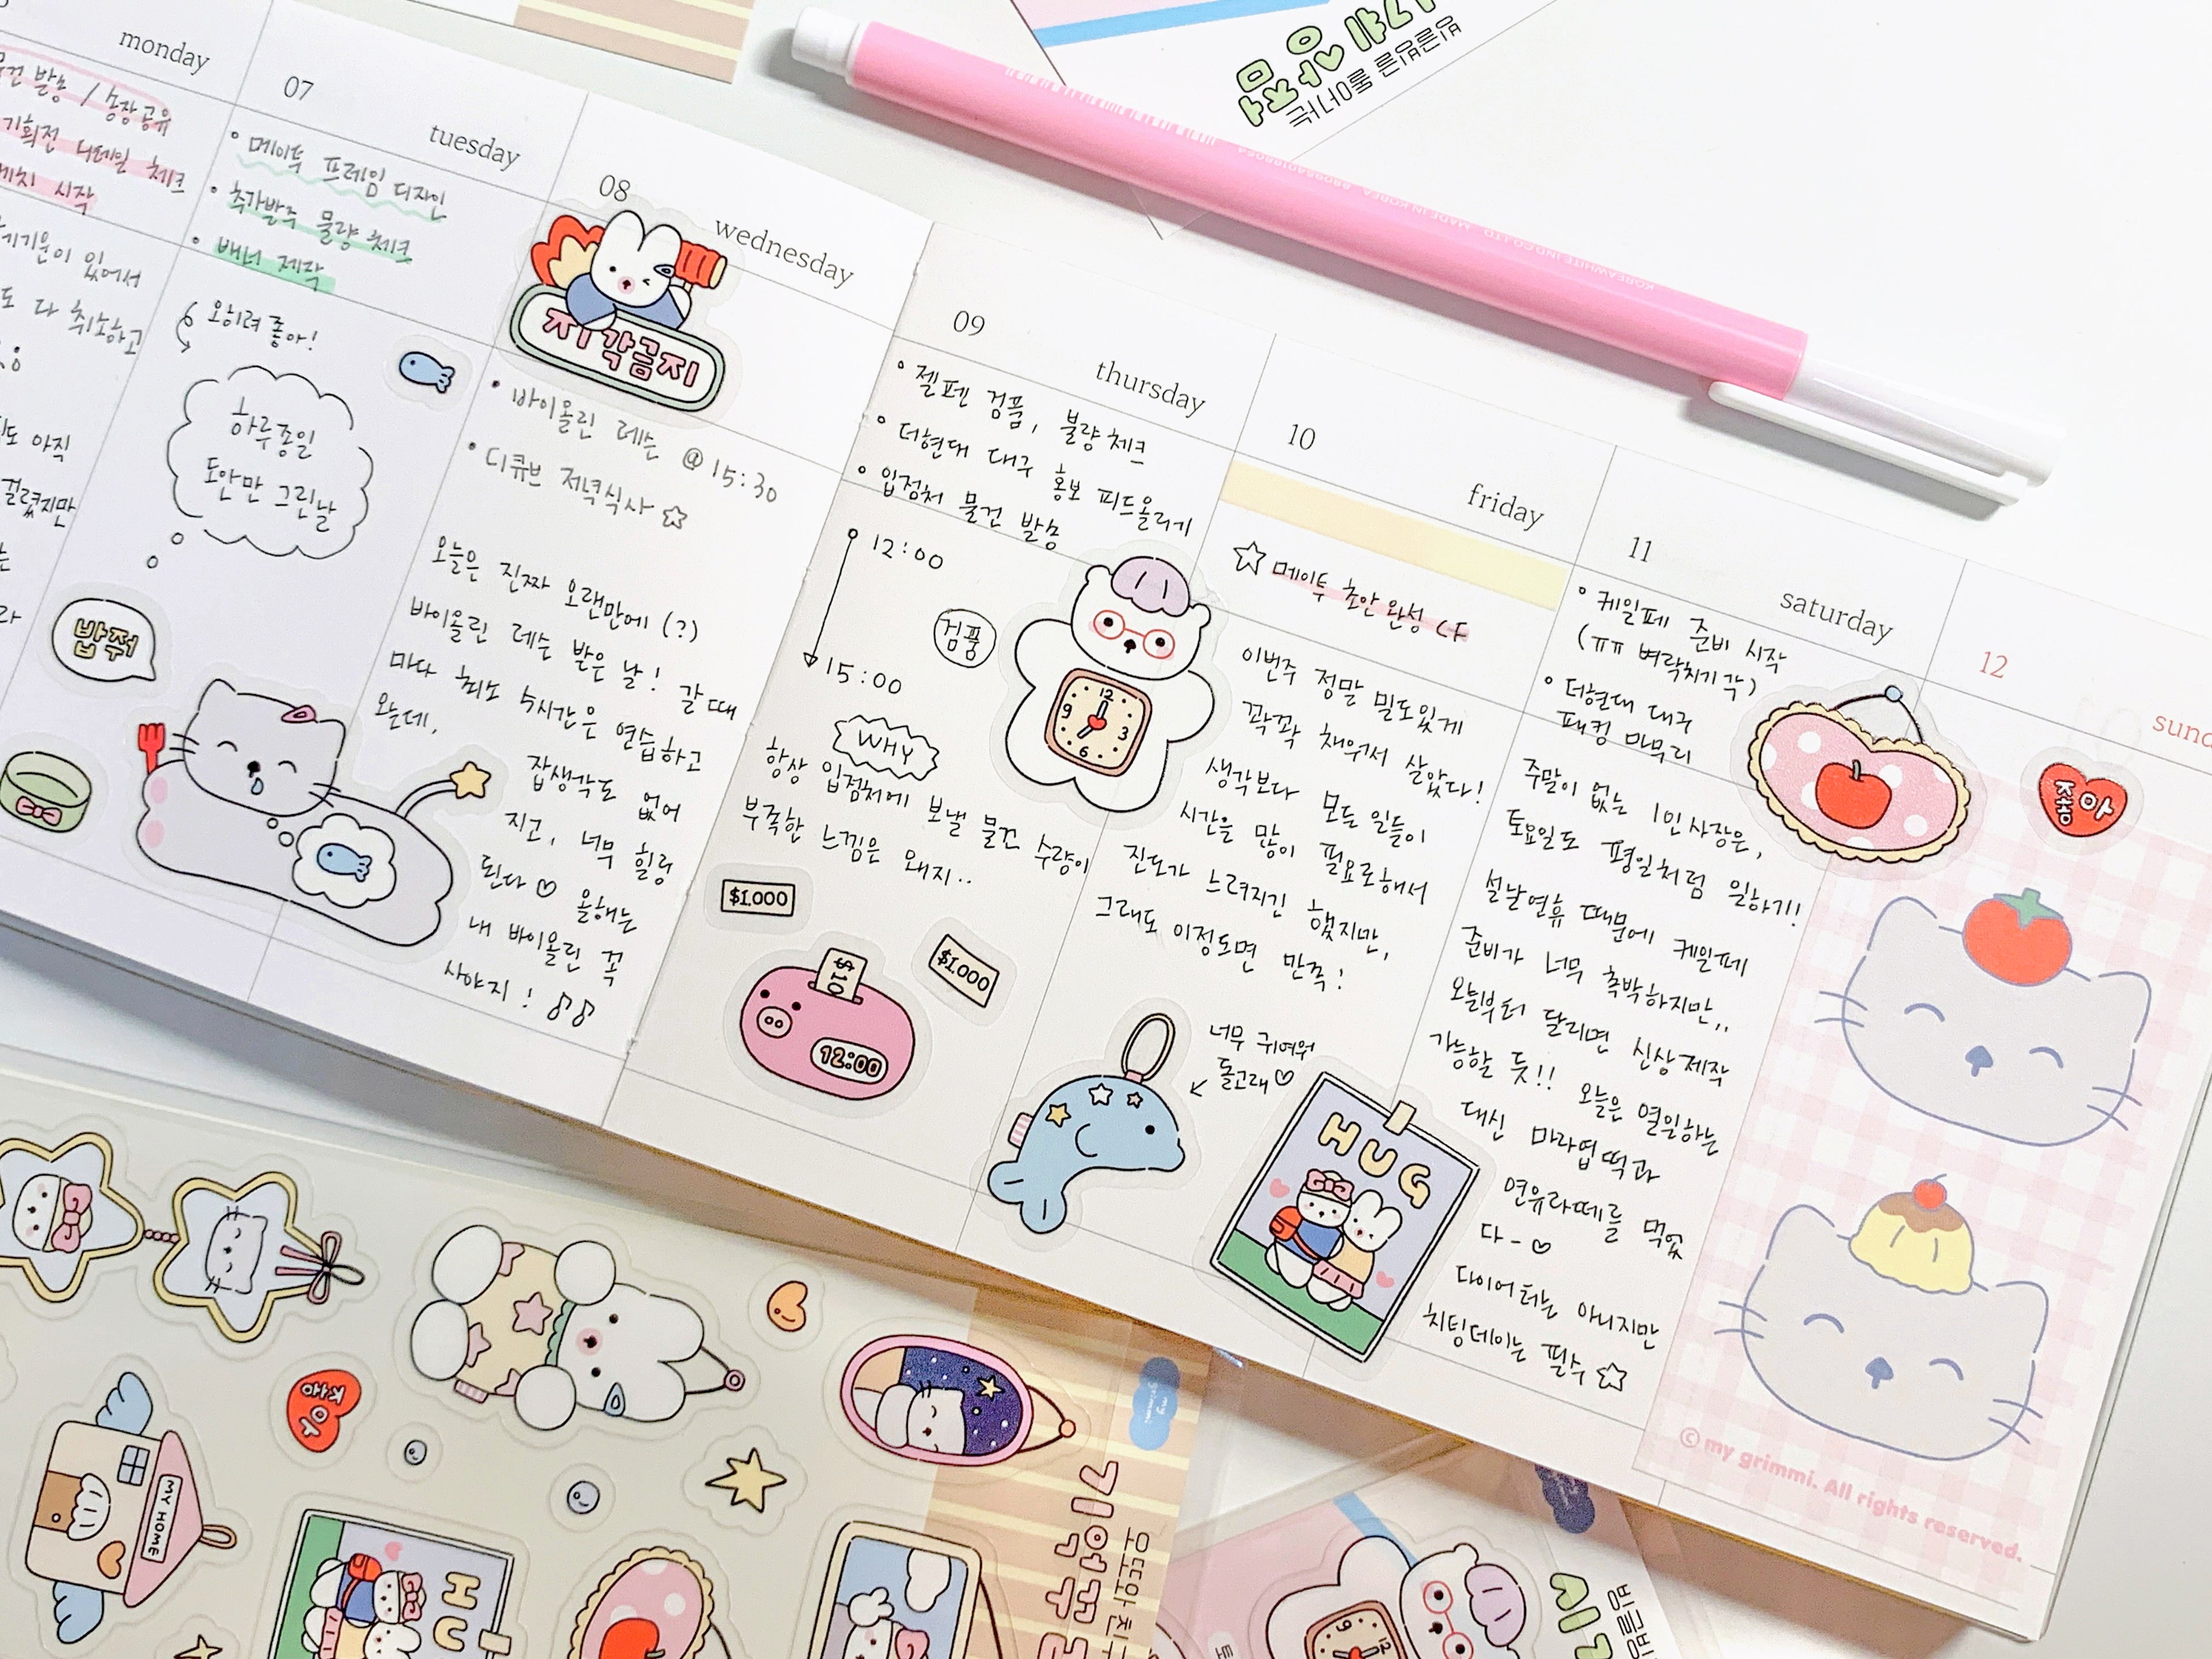 monday
물건 발송 / 송장공유
기획전 디테일 체크
시작
있어서
다 취소하고
아직
걸렸지만
07
tuesday
메이투 프레임 디자인
추가발주 물량 체크
배너 제작
오히려 좋아!
하루종일
도안만 그린날
밥줘
08
wednesday
지각금지
바이올린 레슨 @ 15:30
디큐브 저녁식사 ☆
오늘은 진짜 오랜만에 (?)
바이올린 레슨 받은 날! 갈 때
마다 최소 4시간은 연습하고
오는데,
잡생각도 없어
지고, 너무 힐링
된다 ♡ 올해는
내 바이올린 꼭
사야지! ♫♫
09
thursday
젤펜 검품, 불량체크
더현대 대구 홍보 피드올리기
입점처 물건 발송
12:00
검품
15:00
WHY
항상 입점처에 보낼 물건 수량이
부족한 느낌은 왜지..
12
9
3
6
$1,000
$1,000
$10
12:00
10
friday
☆ 메이투 초안 완성 CF
이번주 정말 밀도있게
꽉꽉 채워서 살았다!
생각보다 모든 일들이
시간을 많이 필요로해서
진도가 느려지긴 했지만,
그래도 이정도면 만족!
너무 귀여워
돌고래♡
HUG
11
saturday
케일페 준비 시작
(ㅠㅠ 벼락치기각)
더현대 대구
패킹 마무리
주말이 없는 1인사장은,
토요일도 평일처럼 일하기!
설날연휴 때문에 케일페
준비가 너무 촉박하지만..
오늘부터 달리면 신상제작
가능할 듯!! 오늘은 열일하는
대신 마라엽떡과
연유라떼를 먹었
다-♡
다이어터는 아니지만
치팅데이는 필수☆
12
sund
좋아
© my grimmi. All rights reserved.
좋아
MY HOME
HU
my grimmi